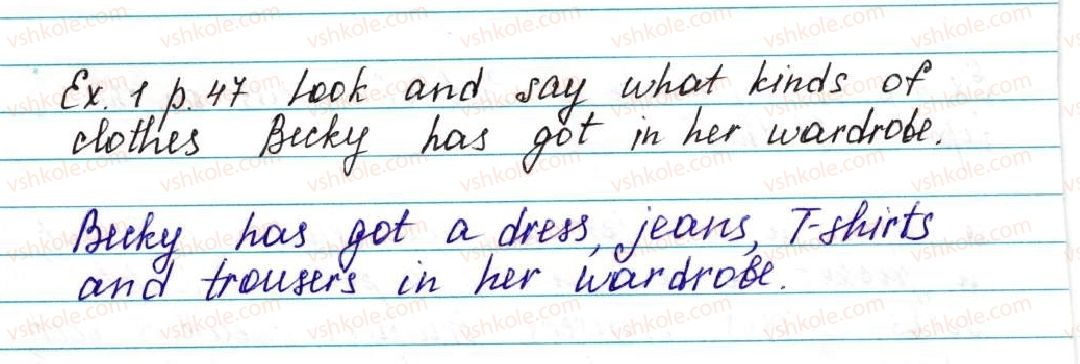 Ex. 1 p. 47 Look and say what kinds of
clothes Becky has got in her wardrobe.
Becky has got a dress, jeans, T-shirts
and trousers in her wardrobe.